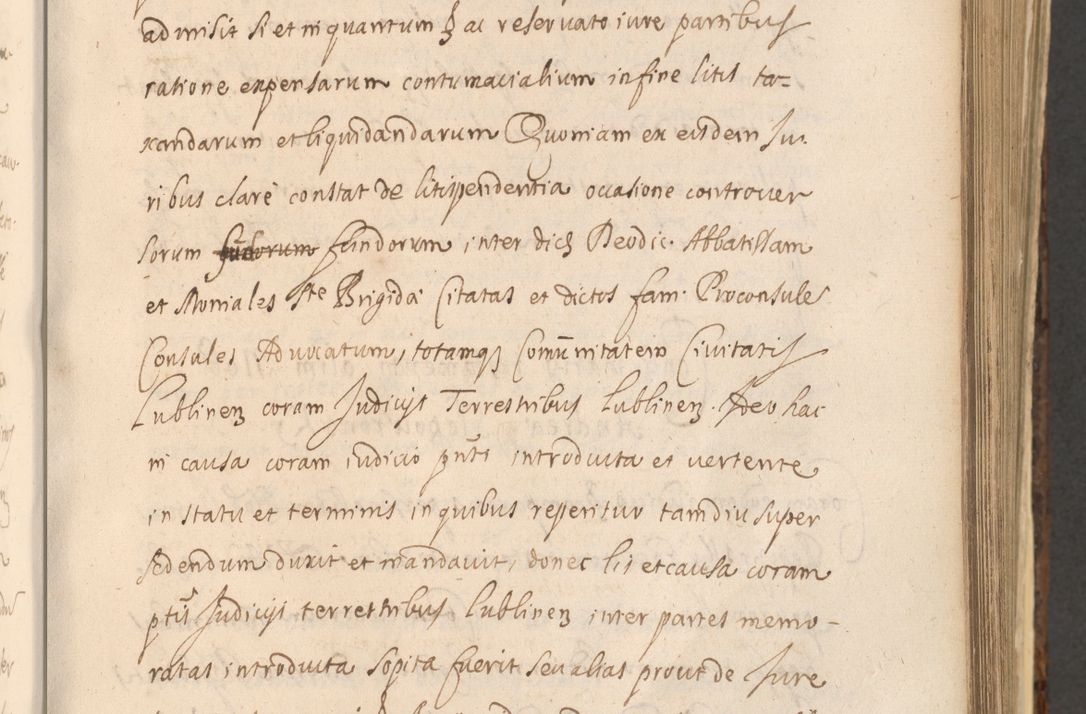 admisit si et in quantum ꝫ ac reservato iure partibus
ratione expensarum contumacialium in fine litis ta=
xandarum et liquidandarum Quoniam ex eisdem Ju-
ribus clarè constat de litispendentia occasione controver
sorum fundorum inter dictꝫ Devodic. Abbatissam
et Moniales Ste Brigidæ Citatas et dictos fam. Proconsule
Consules Advocatum, totamqꝫ Com̃unitatem Civitatis
Lublinenꝫ coram Judicijs Terrestribus Lublinenꝫ. Adeo hac
in causa coram iudicio pñti introducta et vertente
in statu et terminis in quibus reperitur tamdiu super
sedendum duxit et mandavit, donec lis et causa coram
ptis Judicijs terrestribus Lublinenꝫ inter partes memo-
ratas introducta sopita fuerit seu alias prout de Jure